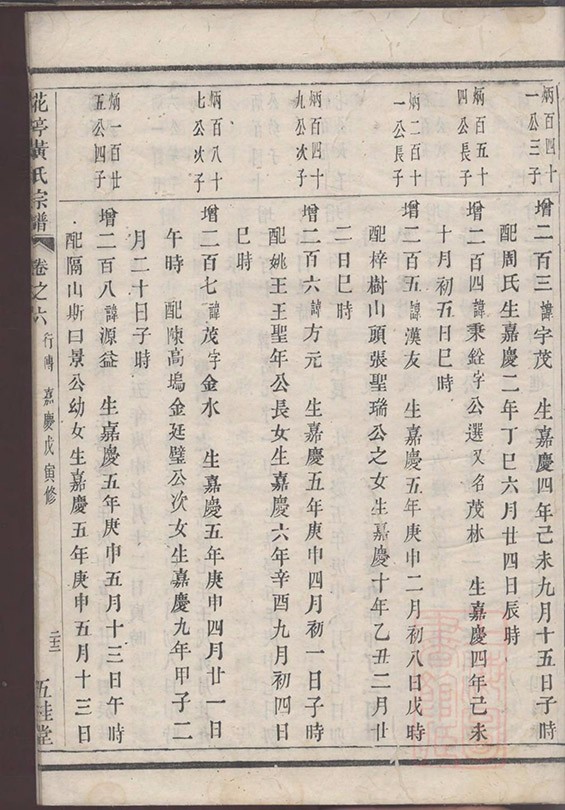 炳百四十一公三子
增二百三諱宇茂 生嘉慶四年己未九月十五日子時
配周氏生嘉慶二年丁巳六月廿四日辰時
炳百五十四公長子
增二百四諱秉銓字公選又名茂林 生嘉慶四年己未
十月初五日巳時
炳二百十一公長子
增二百五諱漢友 生嘉慶五年庚申二月初八日戌時
配梓樹山頭張聖瑞公之女生嘉慶十年乙丑二月廿
二日巳時
炳百四十九公次子
增二百六諱方元 生嘉慶五年庚申四月初一日子時
配姚王王聖年公長女生嘉慶六年辛酉九月初四日
巳時
炳百八十七公次子
增二百七諱茂字金水 生嘉慶五年庚申四月廿一日
午時 配陳高塢金廷璧公次女生嘉慶九年甲子二
月二十日子時
炳百廿五公四子
增二百八諱源益 生嘉慶五年庚申五月十三日午時
配隔山斯曰景公幼女生嘉慶五年庚申五月十三日
花亭黃氏宗譜 卷之六 行傳 嘉慶戊寅修 二十二 五桂堂